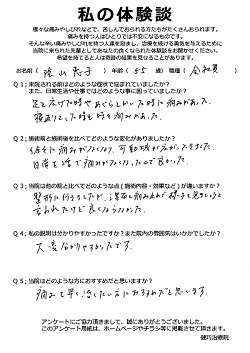 私の体験談
様々な痛みやしびれなどで、苦しんでおられる方たちがたくさんおられます。
痛みを持つ人はひとりでは不安になるものです。
そんな辛い痛みやしびれを持つ人達を励まし、治療を続ける勇気を与えるために
当院に来られた先輩としてあなたの良くなられた体験をお聞かせください。
希望を持てると人は奇跡の結果を見せることがあります。
お名前（ 恵子 ）年齢（ 55 歳 ）職種（ 会社員 ）
Q1；来院される前はどのような症状で悩まれていましたか？
また、日常生活や仕事ではどのような事に困っていましたか？
足を広げた時
Q2；施術前と施術後を比べてどのような変化がありましたか？
可動域が広がった
日常生活で痛みがなくなったので良かったです。
Q3；当院は他の院と比べてどのような点（施術内容・効果など）が違いますか？
整形に行きましたが、
言われたけど良くなりました。
Q4；私の説明は分かりやすかったですか？また院内の雰囲気はいかがでしたか？
大変分かりやすかったです。
Q5；当院はどのような方におすすめだと思いますか？
痛みを早く治したい方におすすめだと思います。
アンケートにご協力頂きまして、誠にありがとうございました。
このアンケート用紙は、ホームページやチラシ等に掲載させて頂きます。
健巧治療院